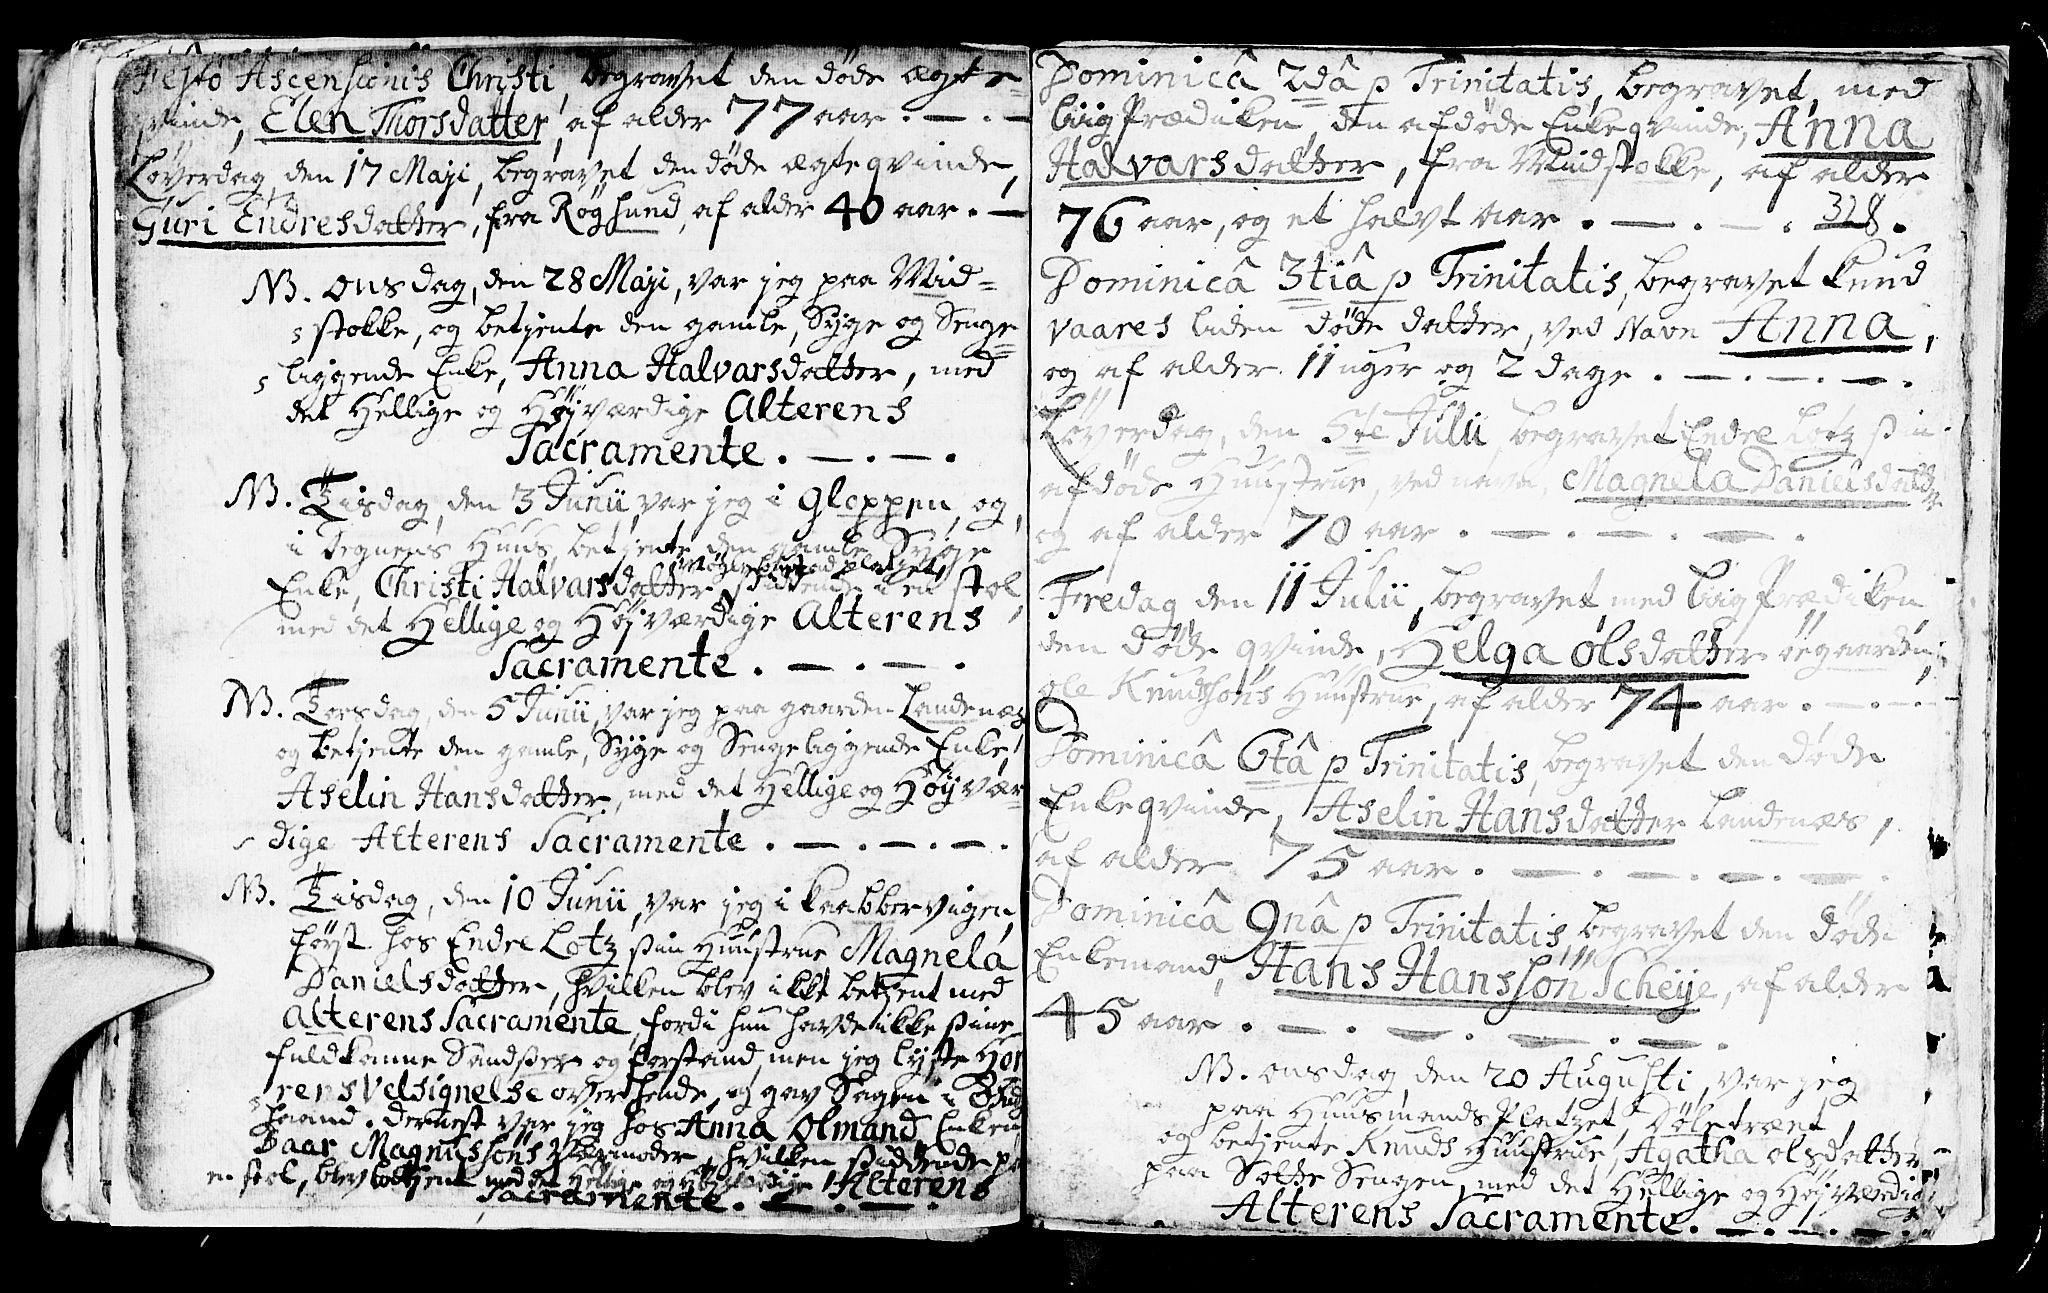 Festo Ascensionis Christi, begravet den døde ægte=
qvinde, Elen Thorsdatter, af alder 77 aar. — . —
Løverdag, den 17 Maji, begravet den døde ægteqvinde,
Guri Endresdatter, fra Røgsund, af alder 40 aar. —
NB. Onsdag, den 28 Maji, var jeg paa Mid=
stokke, og betjente den gamle, Syge og Senge=
liggende Enke, Anna Halvarsdatter, med
det Hellige og Høyværdige Alterens
Sacramente. — . — .
NB. Tisdag, den 3 Junii, var jeg i Gloppen, og,
i Degnens Huus, betjente den gamle Syge
Enke, Christi Halvarsdatter siddende i en stol,
med det Hellige og Høyværdige Alterens
Sacramente. — . — .
NB. Torsdag, den 5 Junii, var jeg paa gaarden Landenæs
og betjente den gamle, Syge og Sengeliggende Enke,
Aselin Hansdatter, med det Hellige og Høyvær=
dige Alterens Sacramente. — . — . — .
NB. Tisdag, den 10 Junii, var jeg i Kaabbervigen,
først hos Endre Lotz sin Huustrue Magnela
Danielsdatter, hvilken blev ikke betjent med
Alterens Sacramente, fordi hun havde ikke sine
fuldkomne Sandser og forstand, men jeg lyste Her
rens Velsignelse over hende, og gav Sagen i Guds
haand. Dernest var jeg hos Anna Olmand, Enken
Baar Magnussøns Værmoder, hvilken siddende på
en stol, blev betjent med det Hellige og Høyværdige Alterens
Sacramente. — . — .
Dominicâ 2dâ p Trinitatis, begravet, med
Liig Prædiken, den afdøde Enkeqvinde, Anna
Halvarsdatter, fra Midstokke, af alder
76 aar, og et halvt aar . — . — . 328.
Dominicâ 3tiâ p Trinitatis, begravet Knud
Vaares liden døde datter, ved Navn Anna,
og af alder 11 uger og 2 dage. — . — . — .
Løverdag, den 5te Julii, begravet Endre Lotz sin
afdøde Huustrue, ved navn, Magnela Danielsdatter
og af alder 70 aar. — . — . — .
Fredag den 11 Julii, begravet, med Liig Prædiken,
den døde qvinde, Helga Olsdatter øegaarden,
Ole Knudssøns Huustrue, af alder 74 aar. — . —
Dominicâ 6tâ p Trinitatis, begravet den døde
Enkeqvinde, Aselin Hansdatter Landenæs,
af alder 75 aar. — . — . — . — .
Dominicâ 9nâ p Trinitatis, begravet den døde
Enkemand, Hans Hanssøn Scheije, af alder
45 aar. — . — . — . — .
NB. Onsdag, den 20 Augusti, var jeg
paa Huusmands Pladtzet, Døletræet,
og betjente Knuds Huustrue, Agatha Olsdatter
paa Sotte Sengen, med det Hellige og Høyværdige
Alterens Sacramente. — . — . — .